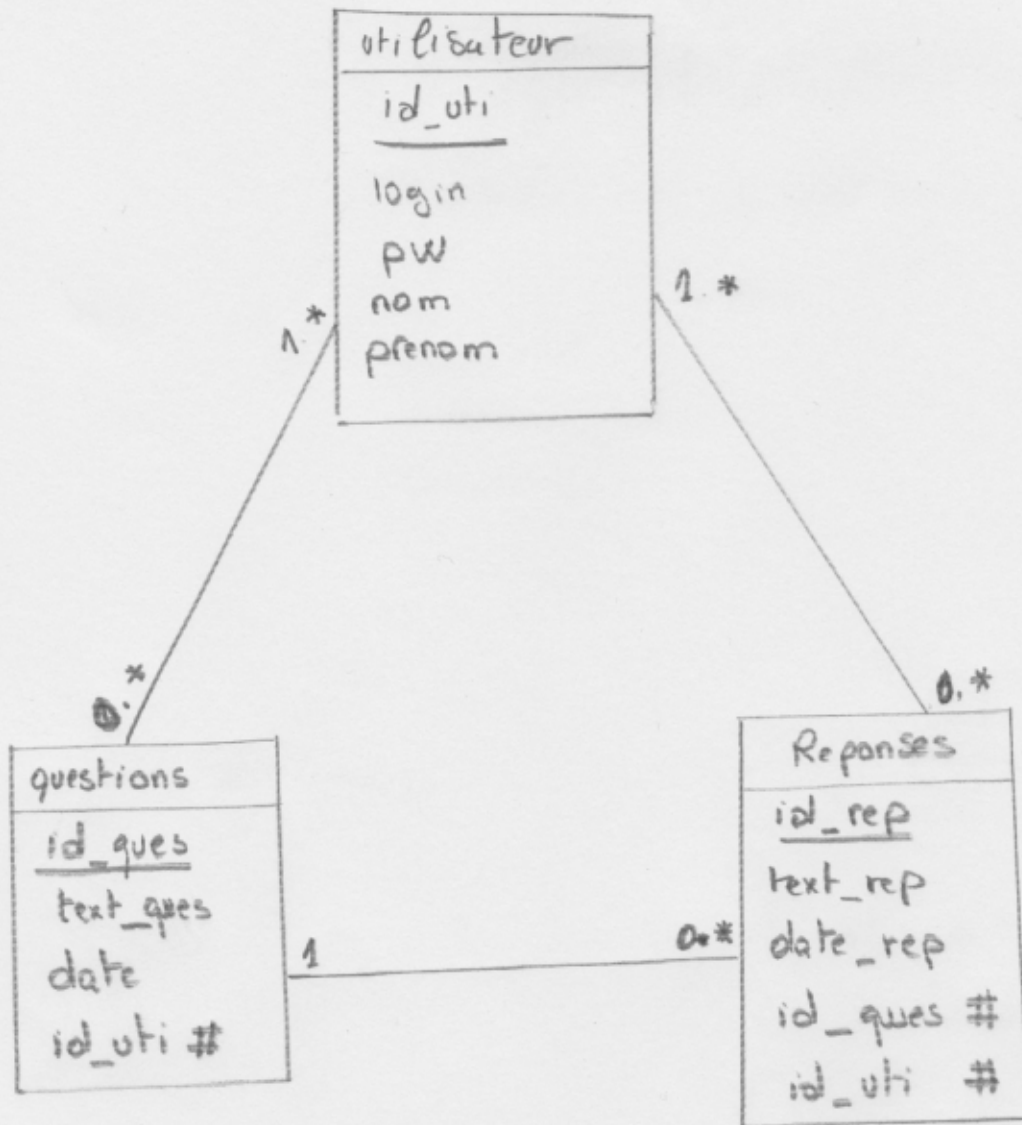 utilisateur
id_uti
login
pw
nom
prenom
1.*
1.*
0.*
0.*
questions
id_ques
text_ques
date
id_uti #
1
0.*
Reponses
id_rep
text_rep
date_rep
id_ques #
id_uti #